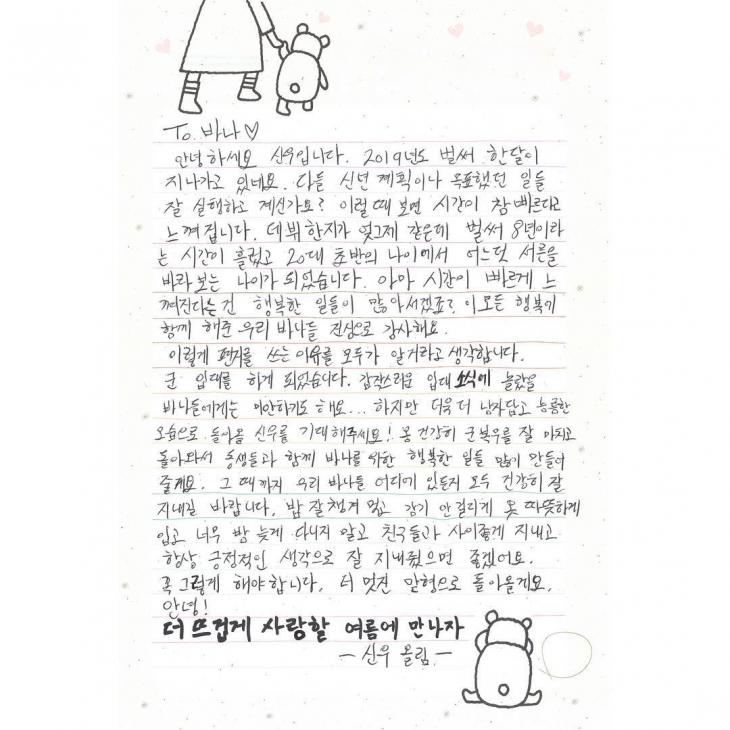 To. 바나♡
안녕하세요 신우입니다. 2019년도 벌써 한달이
지나가고 있네요. 다들 신년 계획이나 목표했던 일들
잘 실행하고 계신가요? 이럴 때 보면 시간이 참 빠르다고
느껴집니다. 데뷔한지가 엊그제 같은데 벌써 8년이라
는 시간이 흘렀고 20대 초반의 나이에서 어느덧 서른을
바라보는 나이가 되었습니다. 아마 시간이 빠르게 느
껴진다는건 행복한 일들이 많아서겠죠? 이 모든 행복기
함께 해준 우리 바나들 진심으로 감사해요.
이렇게 편지를 쓰는 이유를 모두가 알거라고 생각합니다.
군 입대를 하게 되었습니다. 갑작스러운 입대 소식에 놀랐을
바나들에게는 미안하기도 해요... 하지만 더욱 더 남자답고 늠름한
모습으로 돌아올 신우를 기대해주세요! 몸 건강히 군복무를 잘 마치고
돌아와서 동생들과 함께 바나를 위한 행복한 일들 많이 만들어
줄게요. 그 때까지 우리 바나들 어디에 있든지 모두 건강히 잘
지내길 바랍니다. 밥 잘 챙겨 먹고 감기 안 걸리게 옷 따뜻하게
입고 너무 밤 늦게 다니지 말고 친구들과 사이좋게 지내고
항상 긍정적인 생각으로 잘 지내줬으면 좋겠어요.
꼭 그렇게 해야합니다. 더 멋진 말행으로 돌아올게요.
안녕!
더 뜨겁게 사랑할 여름에 만나자
- 신우 올림 -